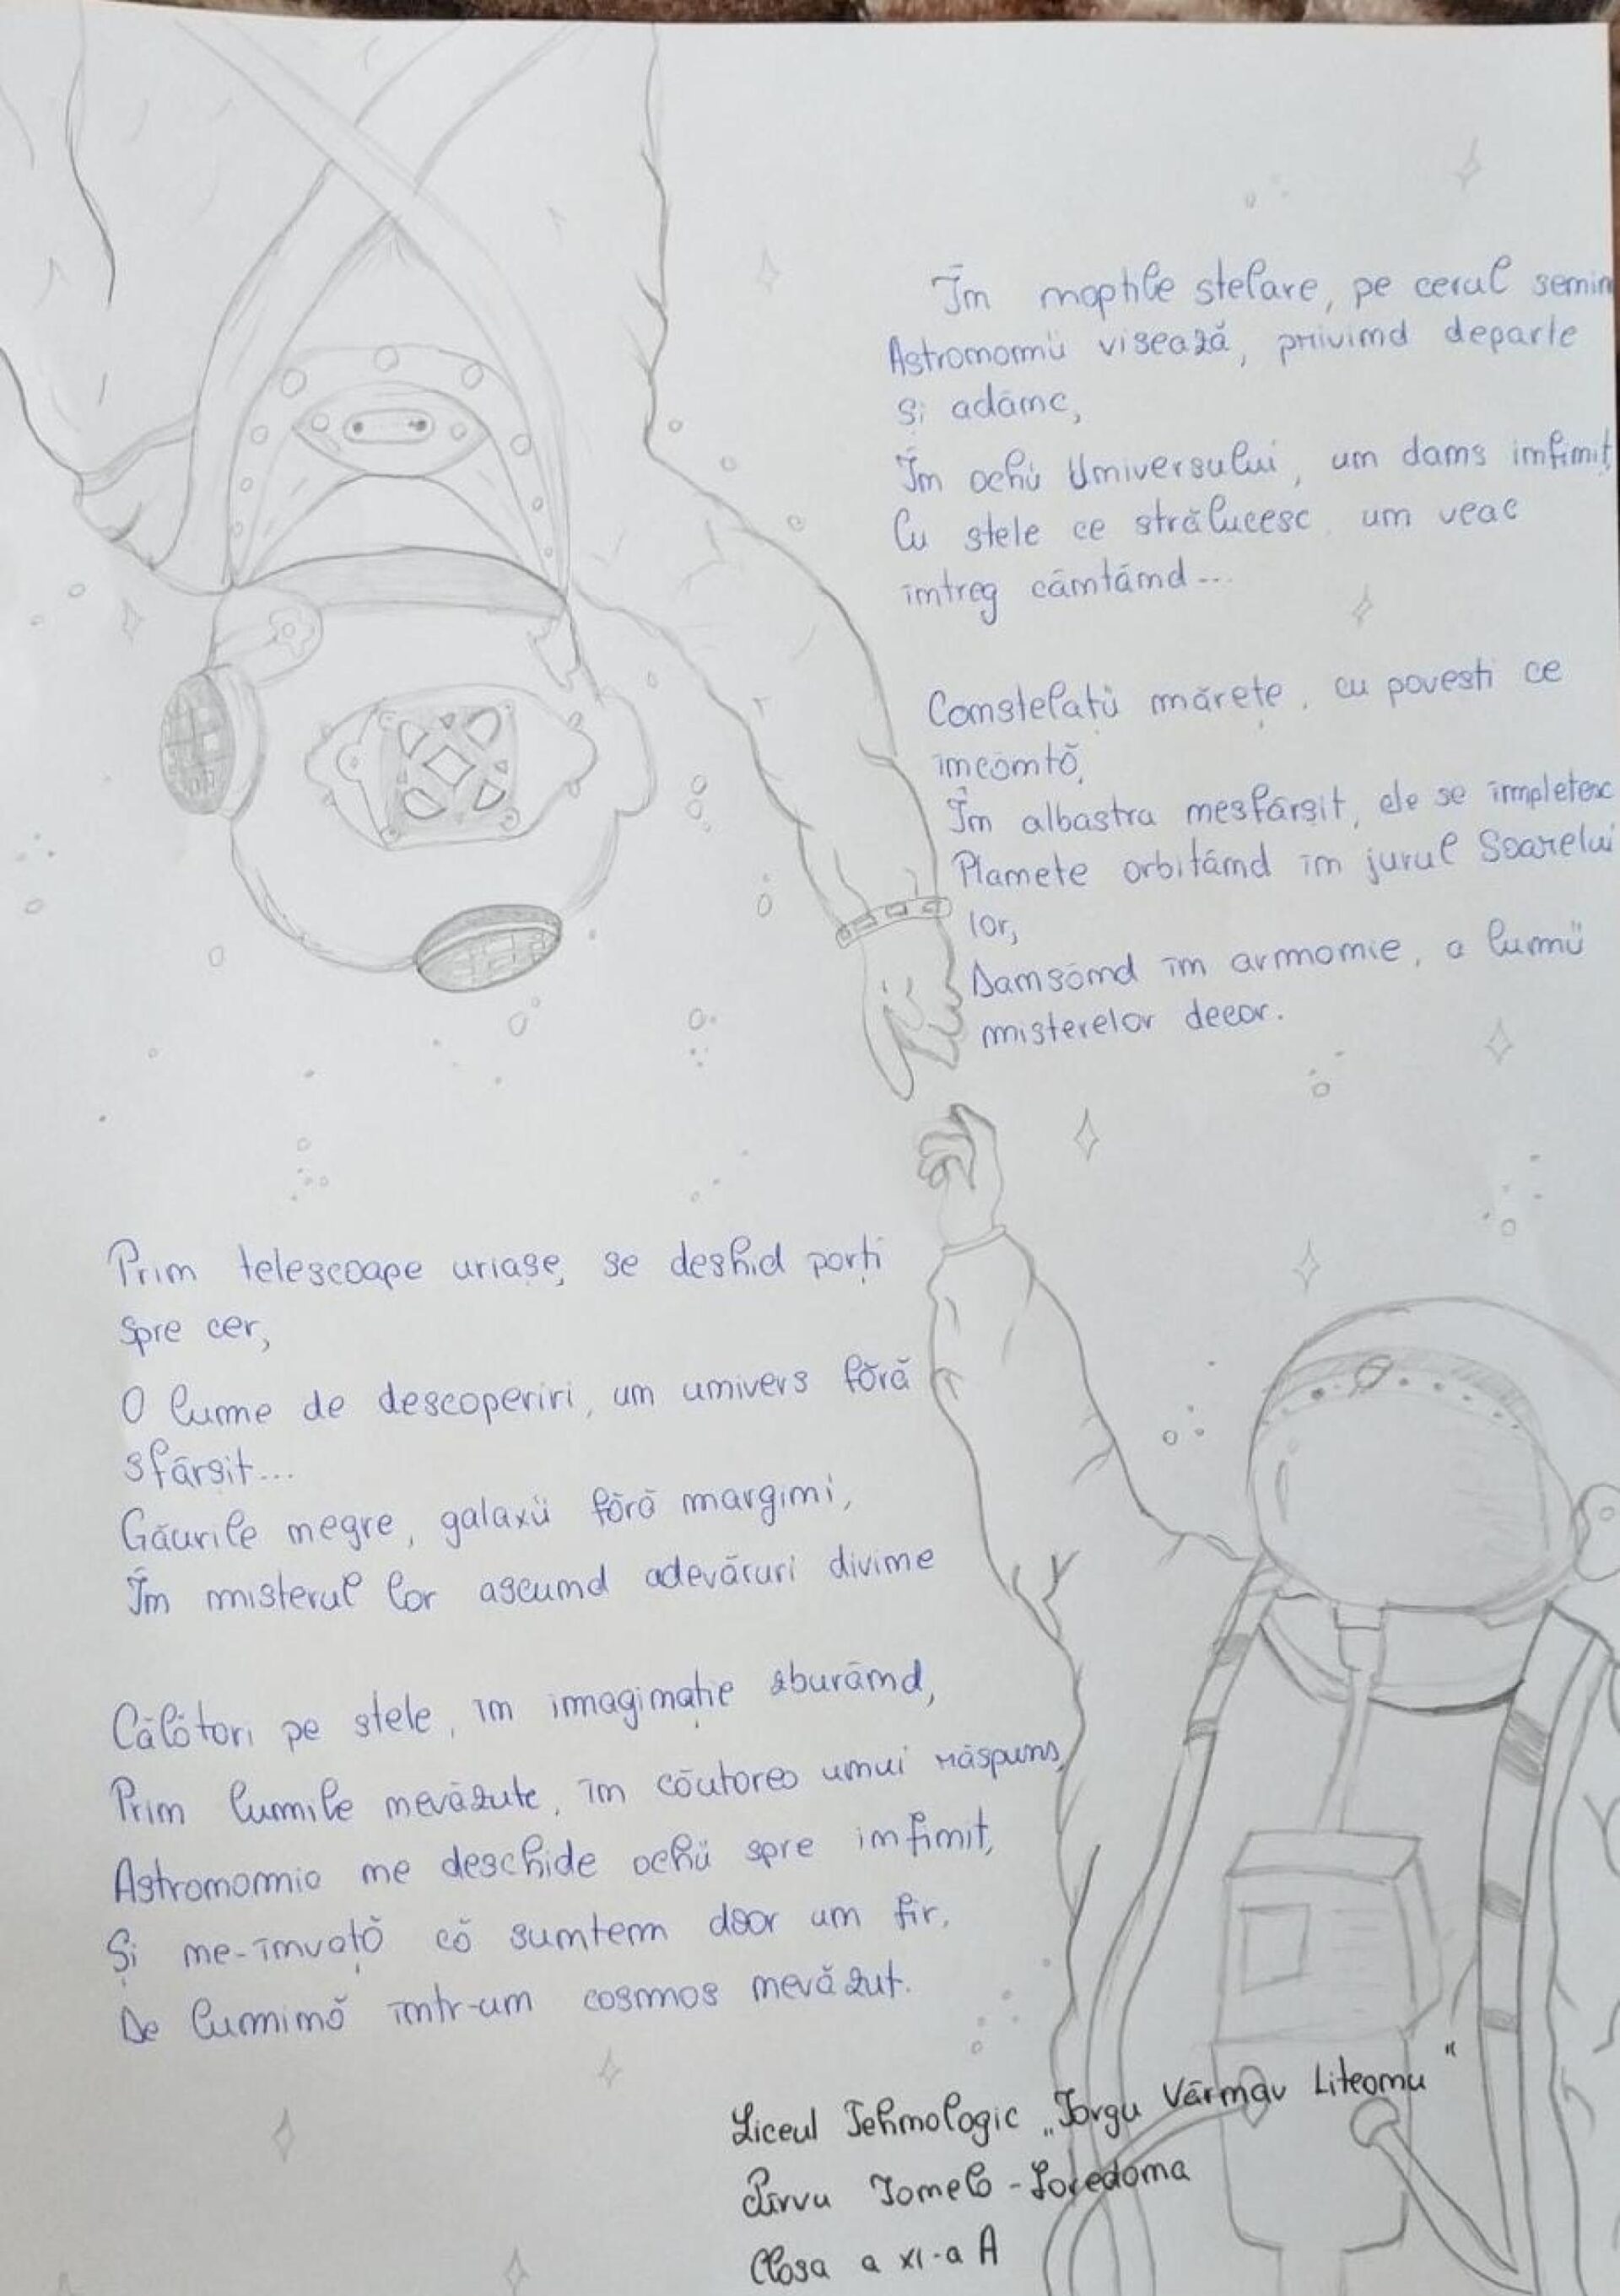 În nopțile stelare, pe cerul senin
Astronomii visează, privind departe
și adânc,
În ochii Universului, un dans infinit,
Cu stele ce strălucesc un veac
întreg cântând...
Constelații mărețe, cu povești ce
încântă,
În albastra nesfârșit, ele se împletesc
Planete orbitând în jurul Soarelui
lor,
Dansând în armonie, a lumii
misterelor decor.
Prin telescoape uriașe, se deshid porți
spre cer,
O lume de descoperiri, un univers fără
sfârșit...
Găurile negre, galaxii fără margini,
În misterul lor ascund adevăruri divine
Călători pe stele, în imaginație zburând,
Prin lumile nevăzute, în căutarea unui răspuns,
Astronomia ne deschide ochii spre infinit,
Și ne-învață că suntem doar un fir,
De lumină într-un cosmos nevăzut.
Liceul Tehnologic „Iorgu Vârnav Liteanu"
Pîrvu Ionela-Loredana
Clasa a XI-a A